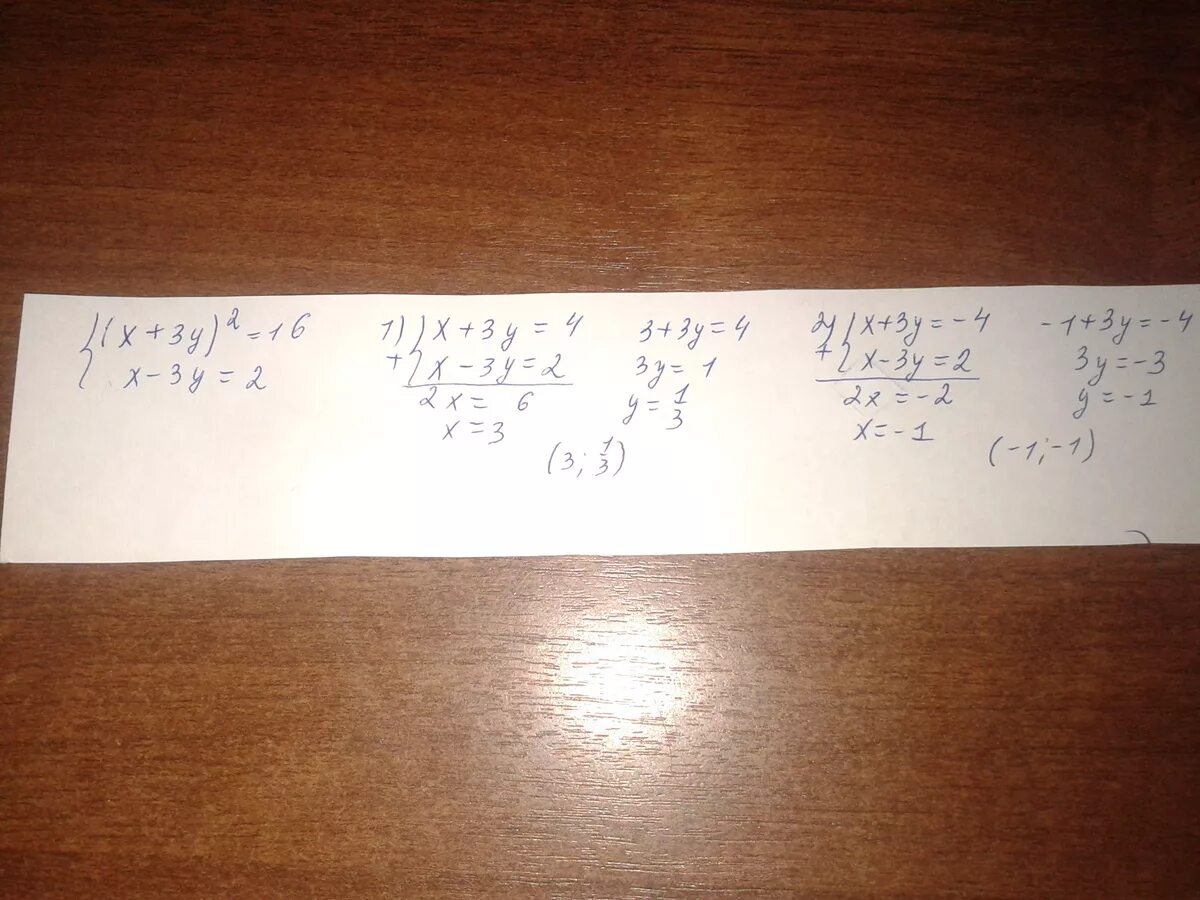 {(x+3y)²=16
x-3y=2
1) {x+3y=4
+ {x-3y=2
2x= 6
x=3
3+3y=4
3y=1
y=1/3
(3; 1/3)
2) {x+3y=-4
+ {x-3y=2
2x=-2
x=-1
-1+3y=-4
3y=-3
y=-1
(-1;-1)